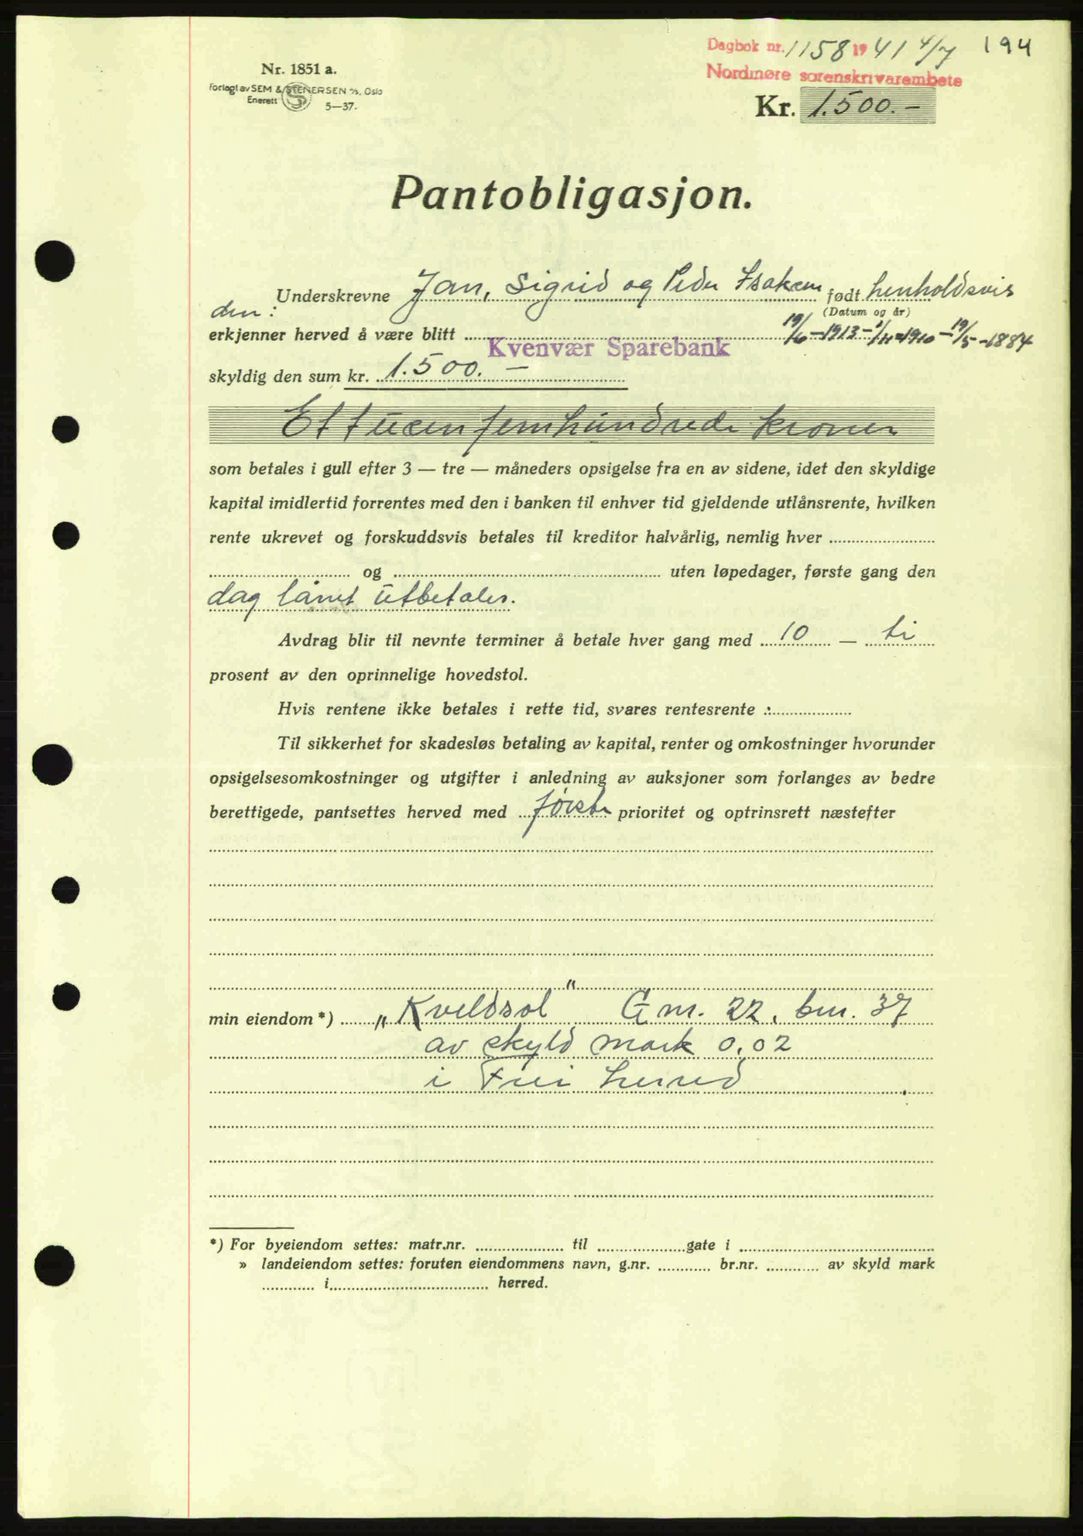 Dagbok nr. 1158 1941 4/7 194
Nordmøre sorenskrivarembete
Nr. 1851 a.
Forlagt av SEM & STENERSEN A/S, Oslo
Enerett 5—37.
Kr. 1.500.-
Pantobligasjon.
Underskrevne Jan, Sigrid og Peder Isaksen født henholdsvis
den: (Datum og år)
erkjenner herved å være blitt 19/6-1913- 1/11-1910- 19/5-1884
Kvenvær Sparebank
skyldig den sum kr. 1.500.-
Et tusen femhundrede kroner
som betales i gull efter 3 — tre — måneders opsigelse fra en av sidene, idet den skyldige
kapital imidlertid forrentes med den i banken til enhver tid gjeldende utlånsrente, hvilken
rente ukrevet og forskuddsvis betales til kreditor halvårlig, nemlig hver
og uten løpedager, første gang den
dag lånet utbetales.
Avdrag blir til nevnte terminer å betale hver gang med 10 — ti
prosent av den oprinnelige hovedstol.
Hvis rentene ikke betales i rette tid, svares rentesrente :
Til sikkerhet for skadesløs betaling av kapital, renter og omkostninger hvorunder
opsigelsesomkostninger og utgifter i anledning av auksjoner som forlanges av bedre
berettigede, pantsettes herved med første prioritet og optrinsrett næstefter
min eiendom *) „Kveldsol" G.nr. 22, bnr. 37
av skyld mark 0,02
i Frei herred
*) For byeiendom settes: matr.nr. til gate i
» landeiendom settes: foruten eiendommens navn, g.nr. br.nr. av skyld mark
i herred.